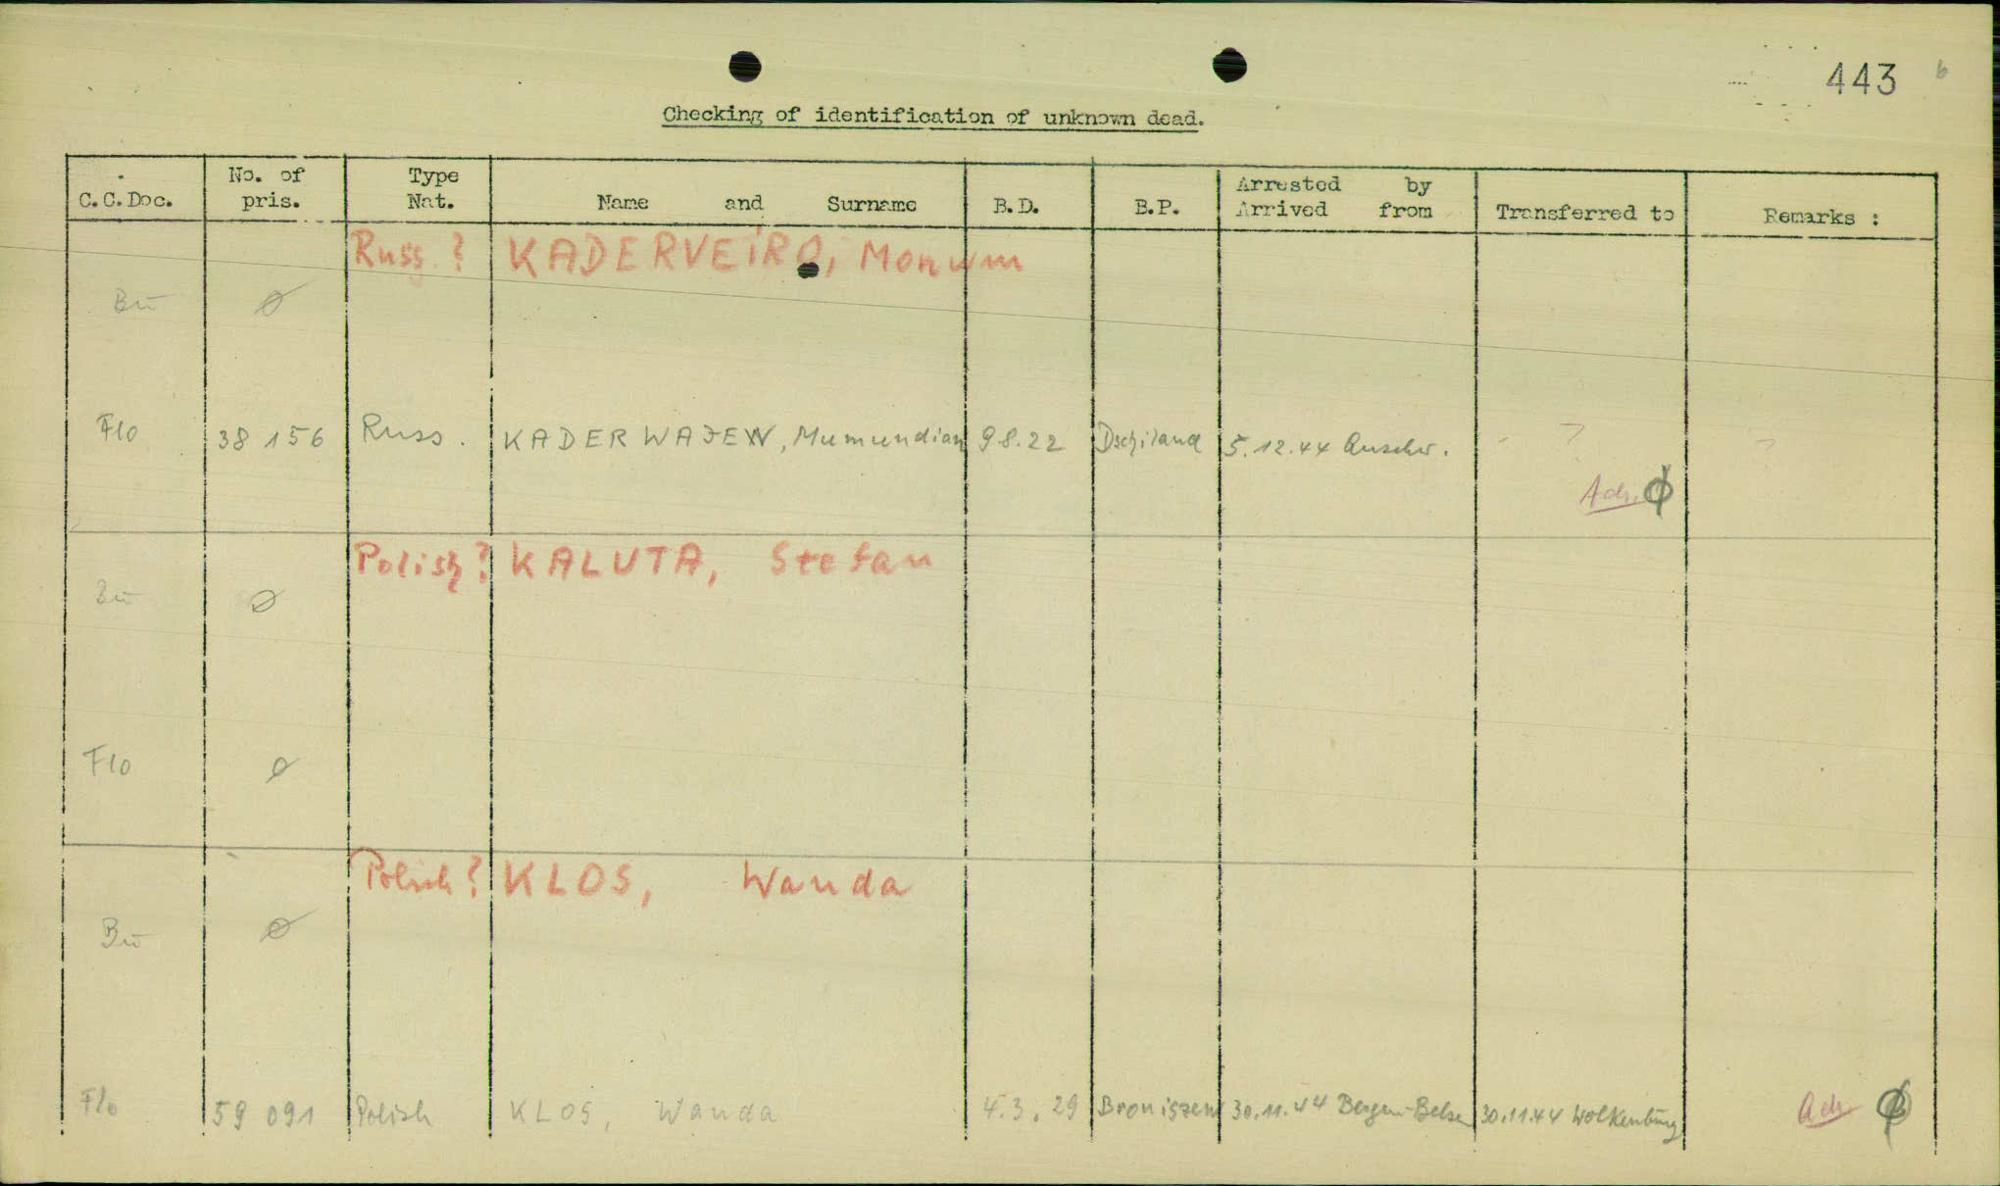 443 6
Checking of identification of unknown dead.
C.C.Doc. No. of pris. Type Nat. Name and Surname B.D. B.P. Arrested by Arrived from Transferred to Remarks :
Russ. ? KADERVEIRO, Monwm
Bu ø
Flo 38 156 Russ. KADERWAJEW, Mumundian 9 8.22 Dschiland 5.12.44 Auschw. - ? ?
Adr. ϕ
Polish? KALUTA, Stefan
Bu ø
Flo ø
Polish? KLOS, Wanda
Bu ø
Flo 59 091 Polish KLOS, Wanda 4.3.29 Broniszew 30.11.44 Bergen-Belse 30.11.44 Wolkenburg Adr ϕ